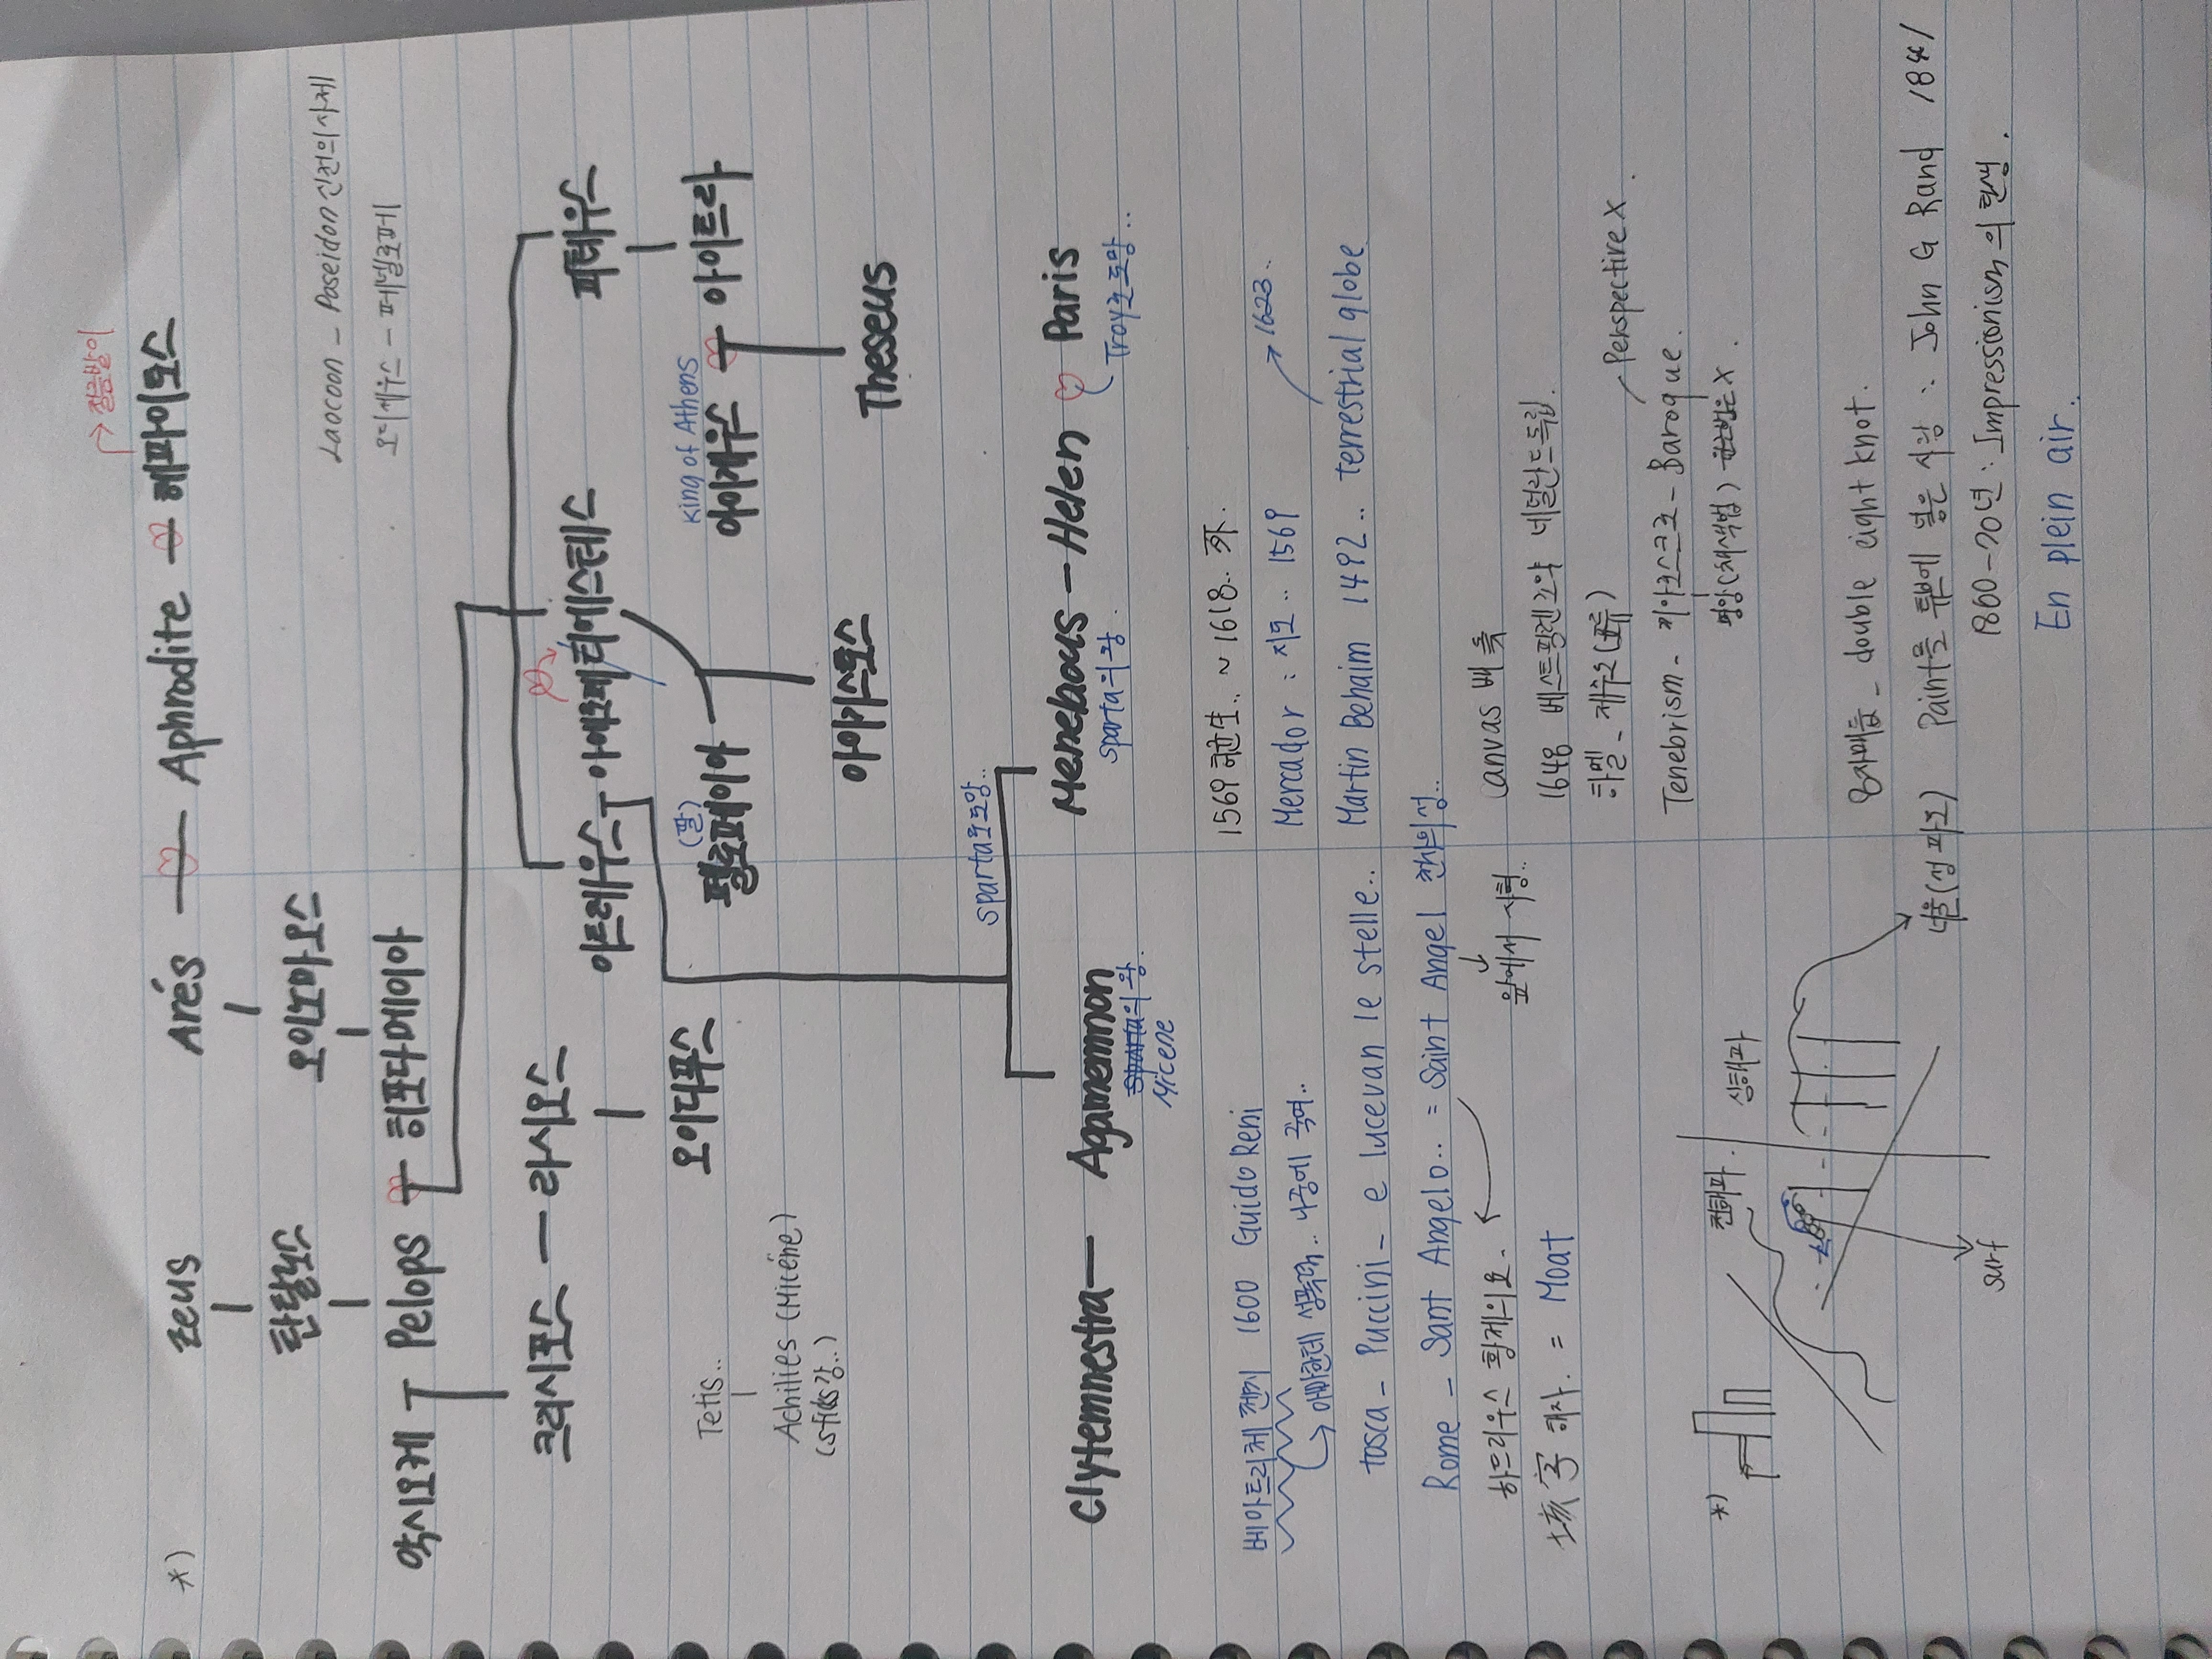 → 절름발이
*) Zeus Arés Aphrodite 헤파이토스
탄탈로스 오이노마오스 Laocoon - Poseidon 신전의 사제
악시오케 Pelops 히포다메이아 오디세우스 - 페넬로페
크리시포스 라이오스 아트레우스 아에로페 티에스테스 피테우스
King of Athens
오이디푸스 펠로페이아 (딸) 아이게우스 아이트라
Tetis..
Achilles (Micéne)
아이기스토스 Theseus
sparta로 도망..
Clytemnestra Agamemnon Menelaous - Helen Paris
sparta의 왕 sparta의 왕. Troy로 도망..
Micene
베아트리체 첸치 1600 Guido Reni
→ 아빠한테 성폭력.. 나중에 죽여..
Tosca - Puccini - e lucevan le stelle..
Rome - Sant Angelo.. = Saint Angel 천사의 성..
하드리우스 황제의 묘. 앞에서 사형..
土亥 字 해자. = Moat
1569 허균生.. ~ 1618..
Mercador : 지도.. 1569 → 1623..
Martin Behaim 1492.. terrestrial globe
Canvas 베
1648 베스트팔렌 조약 네덜란드 독립.
하멜 - 제주도 (표류)
Perspective X.
Tenebrism - 키아로스크로 - Baroque.
명암 (채색법) 원근법은 X.
*) 전해파. 상해파
surf
너울 (심파고)
8자매듭 - double eight knot.
Paint를 튜브에 넣은 사람 : John G Rand 1841
1860-70년 : Impressionism의 탄생.
En plein air.